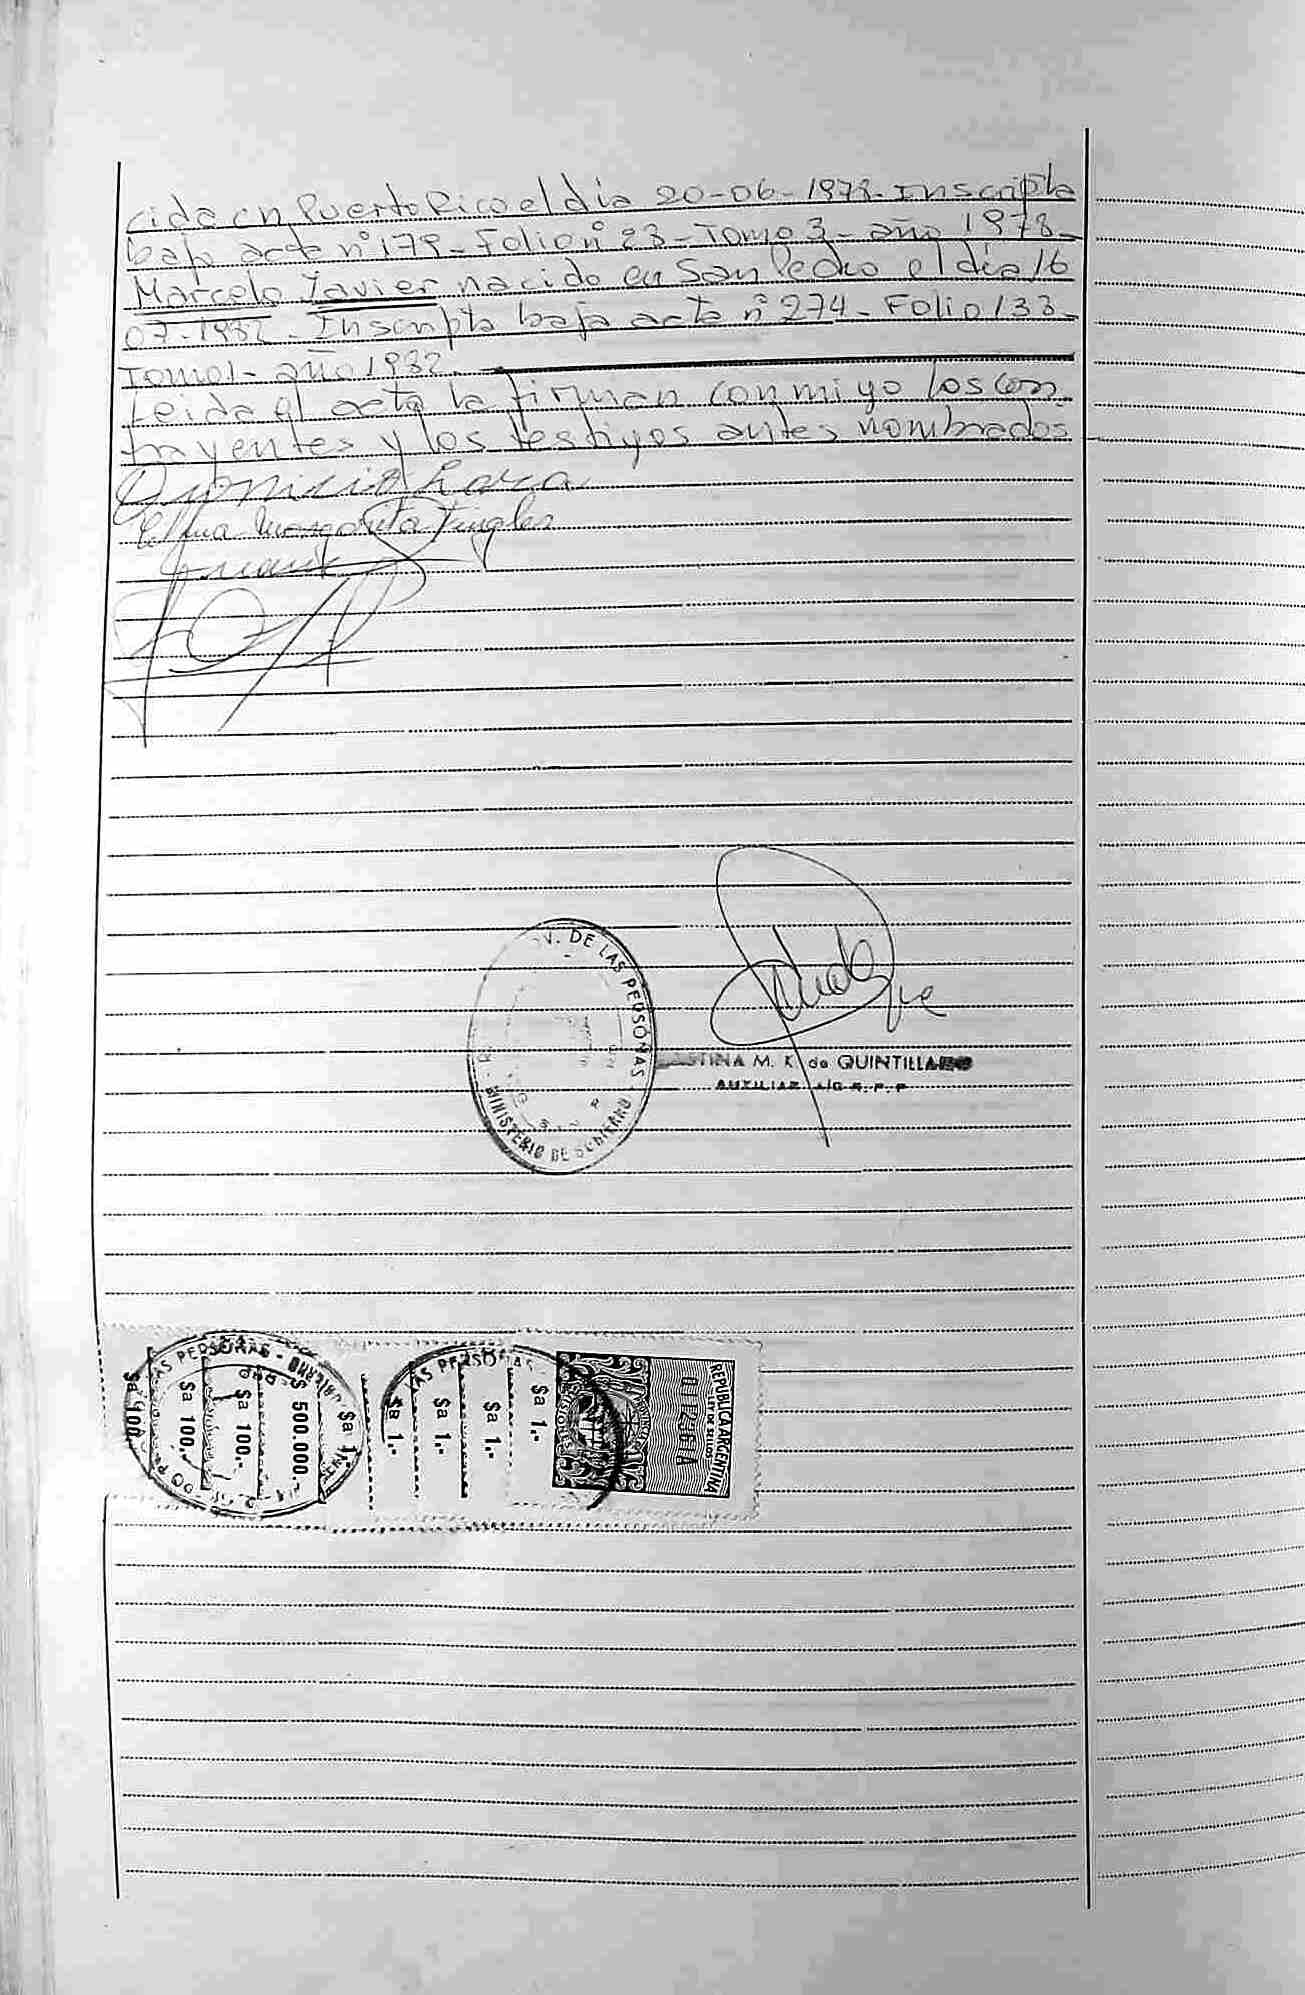 cida en Puerto Rico el día 20-06-1978. Inscripta
bajo acta n° 179 - Folio n° 23 - Tomo 3 - año 1978 -
Marcelo Javier nacido en San Pedro el día 16
07-1982 - Inscripta bajo acta n° 274 - Folio 133 -
Tomo 1 - año 1982.
Leida el acta la firman conmigo los con
trayentes y los testigos antes nombrados
Lara
Elma Margarita
V. DE LAS PERSONAS
MINISTERIO DE GOBIERNO
STINA M. K. de QUINTILLANO
AUXILIAR A/C R. P. P
LAS PERSONAS
$a 100.
$a 100.
$a 100.
$ 500.000.
$a 1.-
LAS PERSONAS
$a 1.-
$a 1.-
$a 1.-
$a 1.-
REPUBLICA ARGENTINA
LEY DE SELLOS